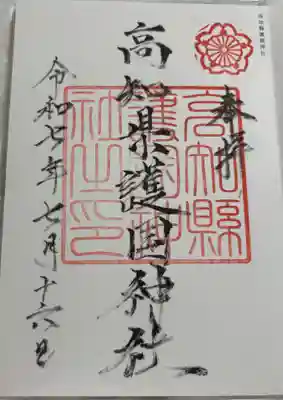 高知縣護國神社
奉拝
高知縣
護國神
社之印
高知県護国神社
令和七年七月十六日